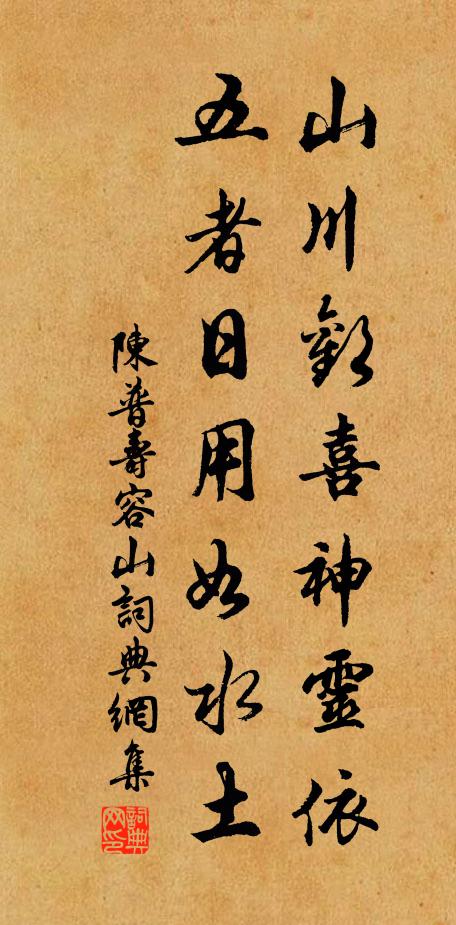 山川歡喜神靈依
五者日用如水土
陳普壽容山詞典網集
詞典網印